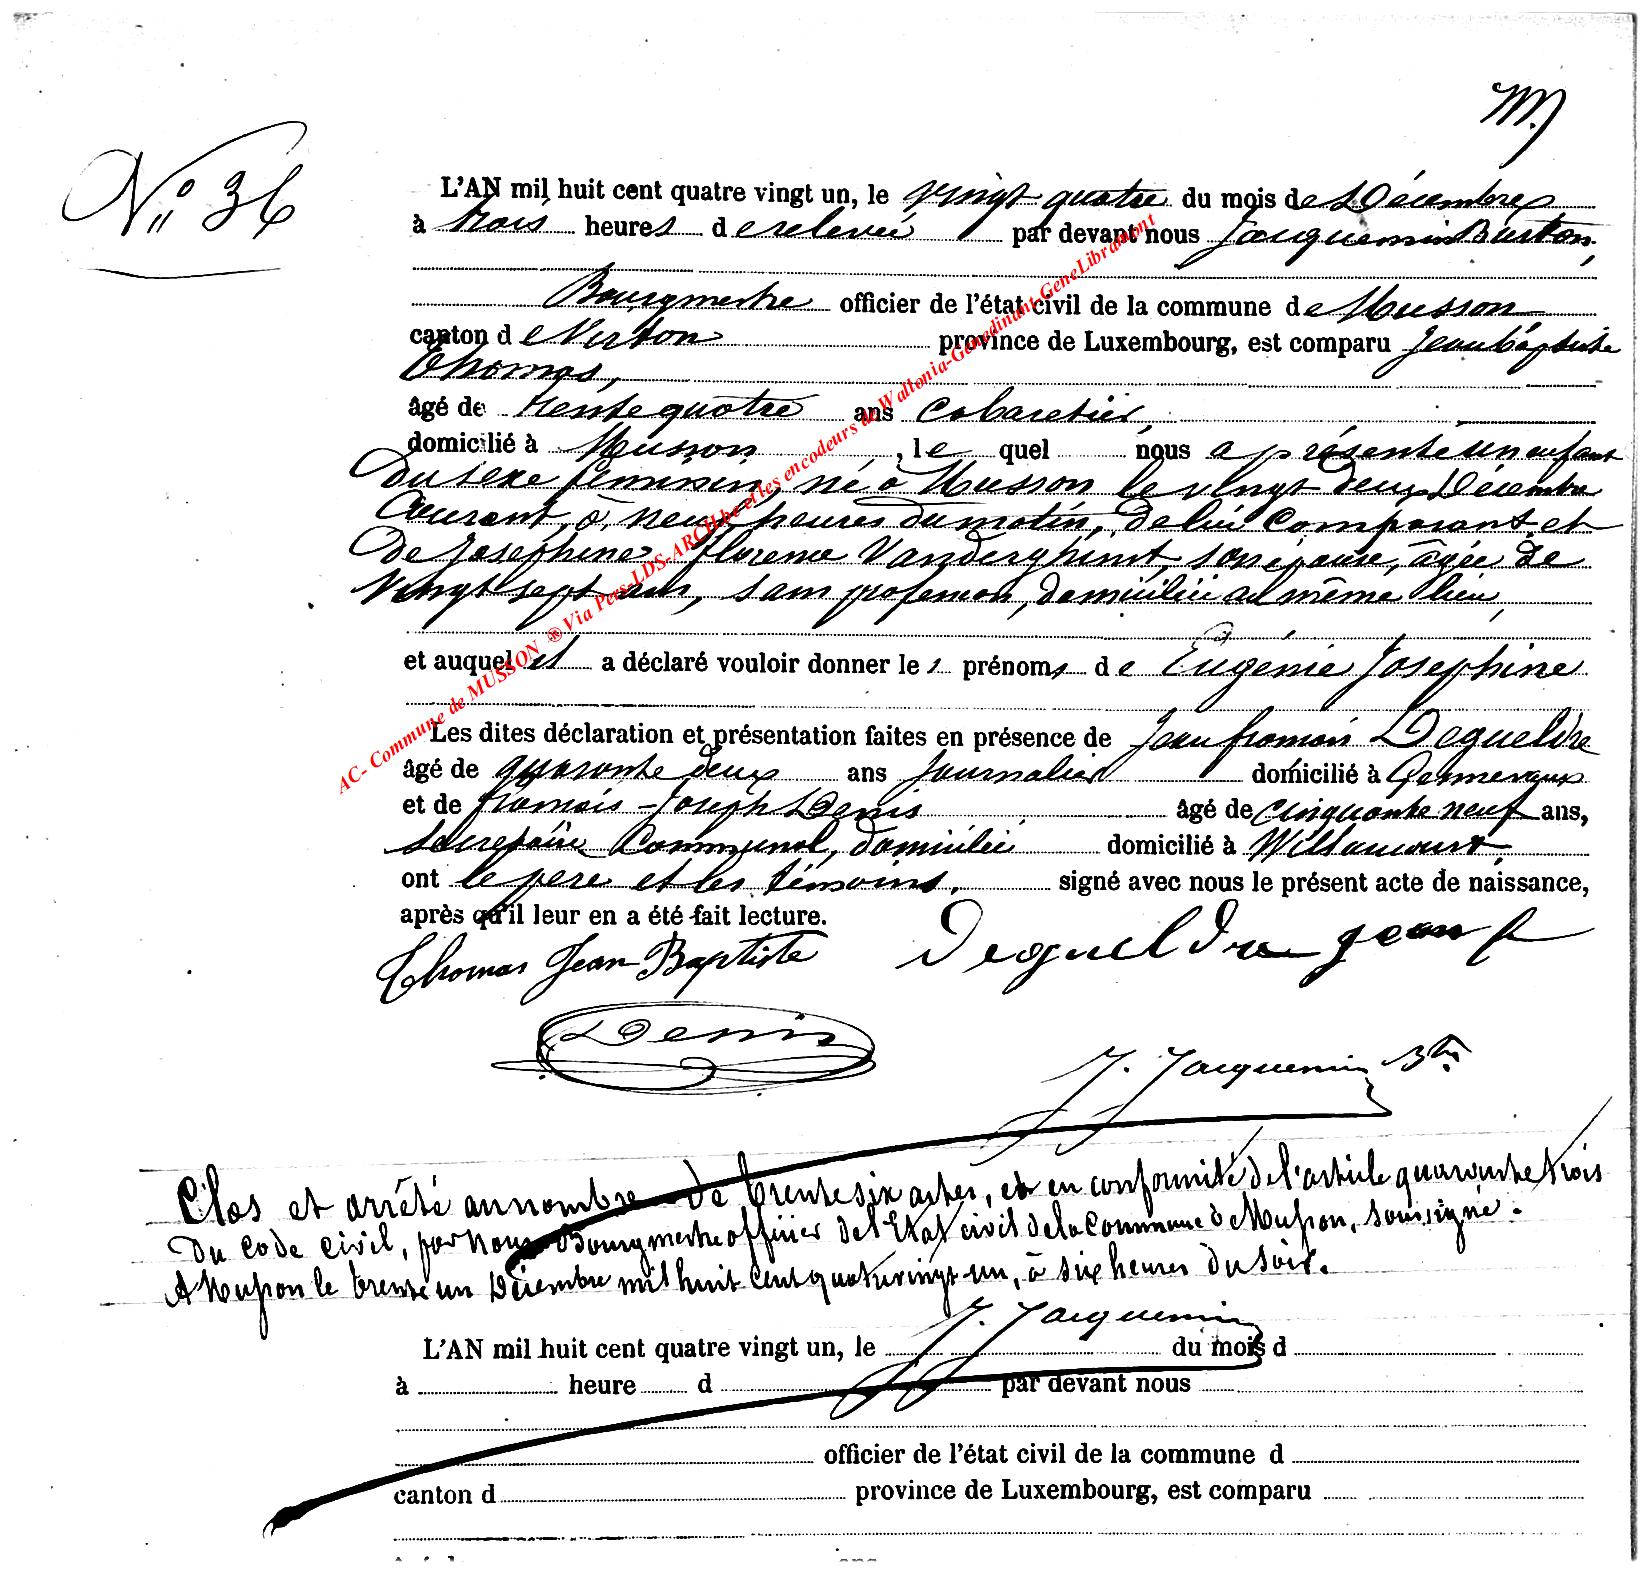 N° 36
L'AN mil huit cent quatre vingt un, le vingt quatre du mois de Décembre
à trois heures de relevée par devant nous Jacquemin Burton,
Bourgmestre officier de l'état civil de la commune de Musson
canton de Virton province de Luxembourg, est comparu Jean Baptiste
Thomas,
âgé de trente quatre ans Cabaretier,
domicilié à Musson, le quel nous a présenté un enfant
du sexe féminin, né à Musson le vingt deux Décembre
Courant, à neuf heures du matin, de lui Comparant et
de Josephine Florence Vanderghinst, son épouse, âgée de
vingt sept ans, sans profession, domiciliée au même lieu,
et auquel il a déclaré vouloir donner les prénoms de Eugénie Josephine
Les dites déclaration et présentation faites en présence de Jean françois Degueldre
âgé de quarante deux ans Journalier domicilié à Gennevaux
et de françois-Joseph Denis âgé de Cinquante neuf ans,
Secretaire Communal, domicilié domicilié à Willancourt,
ont le père et les témoins, signé avec nous le présent acte de naissance,
après qu'il leur en a été fait lecture.
Thomas Jean Baptiste Degueldre Jean f
Denis
J. Jacquemin Btn
Clos et arrêté au nombre de trente six actes, et en conformité de l'article quarante trois
du code civil, par Nous Bourgmestre officier de l'Etat civil de la Commune de Musson, soussigné.
A Musson le trente un Décembre mil huit cent quatre vingt un, à six heures du soir.
J. Jacquemin
L'AN mil huit cent quatre vingt un, le du mois d
à heure d par devant nous
officier de l'état civil de la commune d
canton d province de Luxembourg, est comparu
AC- Commune de MUSSON ® Via Pers-LDS-ARCH.be et les encodeurs de Wallonia-Genedinant-GeneLibramont